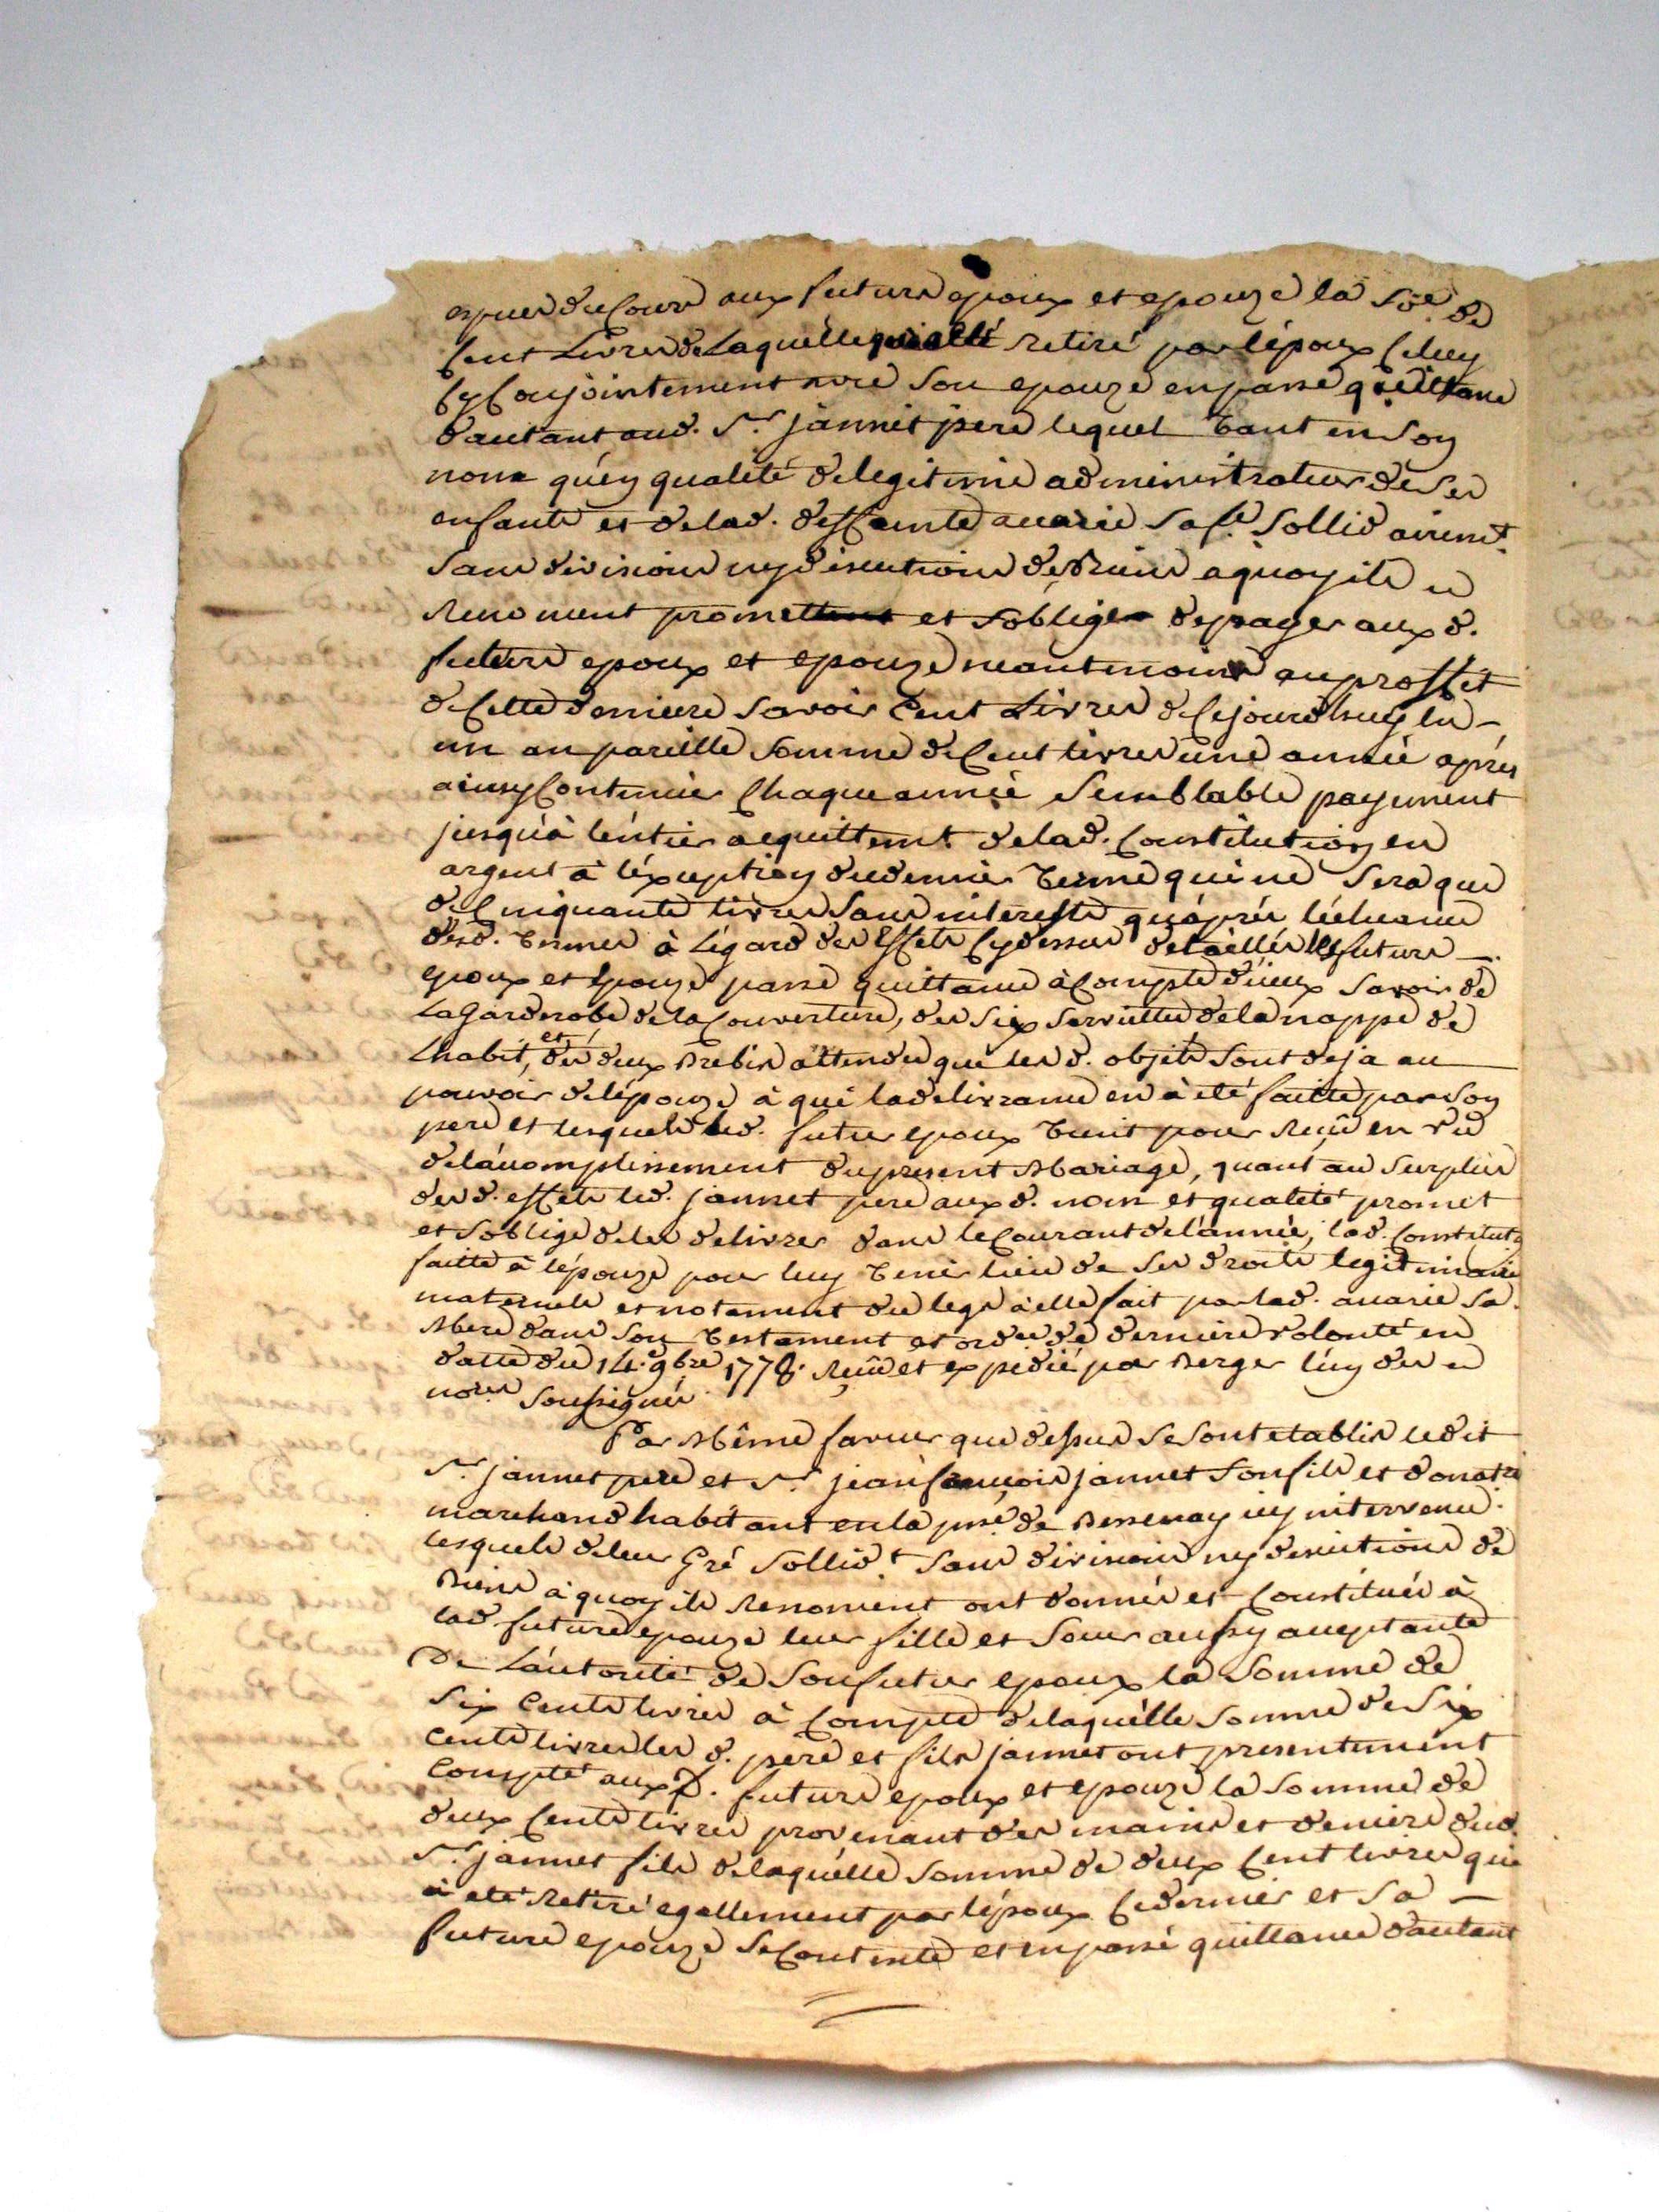 especes du Cours aux futurs epoux et epouze la Soe. de
Cent Livres de Laquelle retiré par l'époux Celuy
Cy Conjointement avec Son epouze en passe quittance
d'autant aud. Sr. jannet pere lequel tant en Son
nom qu'en qualité de legitime administrateur de Ses
enfants et de lad. deffunte avarie Sa fe. Sollid airemt.
Sans divisions ny discutions de Biens a quoy ils
Renoncent promettent et s'oblige de payer aux d.
futurs epoux et epouze neantmoins au proffit
de Cette derniere Savoir Cent Livres de Ce jourd'huy en
un an pareille Somme de Cent livres une année aprés
ainsy Continuer Chaque année Semblable payement
jusqu'à l'entier acquittemt. de lad. Constitution en
argent à l'exception du dernier terme qui ne Sera que
de Cinquante livres Sans interests qu'aprés l'echeance
desd. termes à l'égard des Effets Cydessus detaillés les futurs
epoux et Epouze passe quittance à Compte d'iceux Savoir de
La Garderobe de la Couverture, des Six Serviettes de la nappe de
Lhabit, et des deux Brebis attendu que les d. objets Sont deja au
pouvoir de l'épouze à qui la delivrance en à eté faitte par Son
pere et lesquels led. futur epoux tient pour Reçû en vue
de l'accomplissement du present Mariage, quant au Surplus
des d. effets led. jannet pere aux d. nom et qualité promet
et s'oblige de les delivrer dans le Courant de l'année, lad. Constitutn
faitte à l'épouze pour luy tenir lieu de Ses droits legitimaire
maternels et notament du legs à elle fait par lad. avarie Sa
Mere dans Son testament et ordce. de derniere volonté en
datte du 14. 9bre 1778. Reçû et expedié par Berger l'un des
nores. Soussignés
Par Même faveur que dessus Se Sont etablis ledit
Sr. jannet pere et Sr. jean françois jannet Son fils et donatre
marchand habitant en la psse. de Bessenay icy intervenu.
lesquels de leur Gré Sollidt. Sans divisions ny discutions de
Biens à quoy ils Renoncent ont donné et Constitué à
lad future epouze leur fille et Soeur aussy acceptante
De L'autorité de Son futur epoux la Somme de
Six Cents livres à Compte de laquelle Somme de Six
Cents livres les d. père et fils jannet ont presentement
Compté aux d. futurs epoux et epouze la Somme de
deux Cents livres provenant des mains et deniers dud.
Sr. jannet fils de laquelle Somme de deux Cent livres qui
à eté Retiré egallement par l'époux Ce dernier et Sa
future epouze Se Contente et en passé quittance d'autant